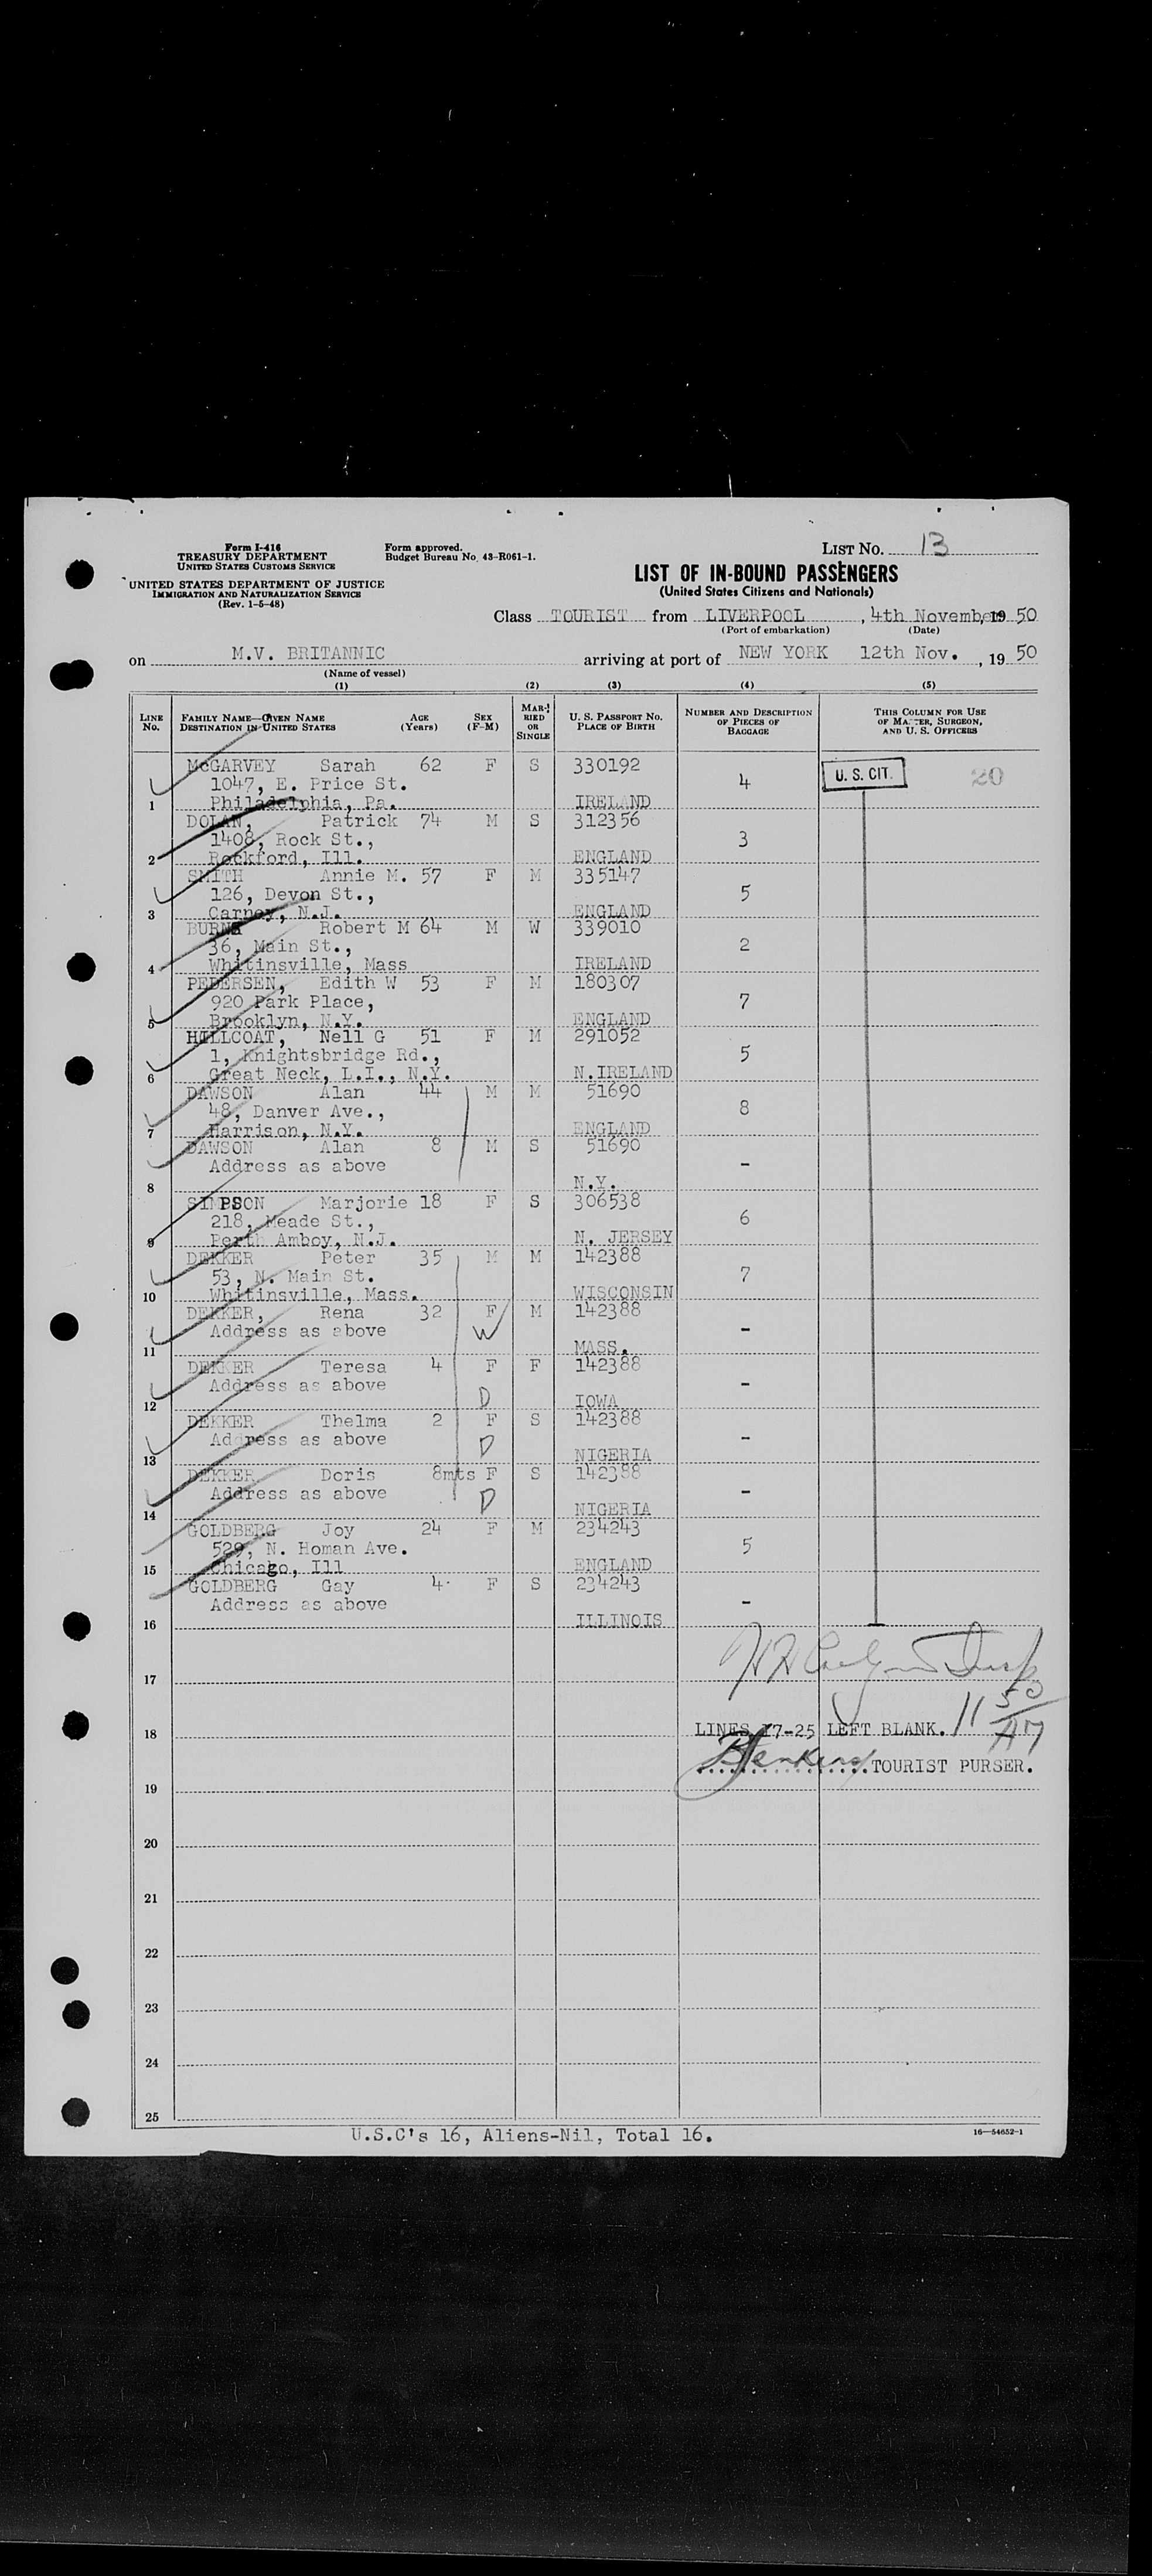 Form I-416
TREASURY DEPARTMENT
UNITED STATES CUSTOMS SERVICE
UNITED STATES DEPARTMENT OF JUSTICE
IMMIGRATION AND NATURALIZATION SERVICE
(Rev. 1-5-48)
Form approved.
Budget Bureau No. 43-R061-1.
LIST NO. 13
LIST OF IN-BOUND PASSENGERS
(United States Citizens and Nationals)
Class TOURIST from LIVERPOOL, 4th November, 19 50
(Port of embarkation) (Date)
on M.V. BRITANNIC arriving at port of NEW YORK 12th Nov., 19 50
(Name of vessel)
(1) (2) (3) (4) (5)
LINE NO. FAMILY NAME—GIVEN NAME DESTINATION IN UNITED STATES AGE (Years) SEX (F-M) MARRIED OR SINGLE U. S. PASSPORT NO. PLACE OF BIRTH NUMBER AND DESCRIPTION OF PIECES OF BAGGAGE THIS COLUMN FOR USE OF MASTER, SURGEON, AND U. S. OFFICERS
McGARVEY Sarah 62 F S 330192
1047, E. Price St. 4 U. S. CIT. 20
1 Philadelphia, Pa. IRELAND
DOLAN, Patrick 74 M S 312356
1408, Rock St., 3
2 Rockford, Ill. ENGLAND
SMITH Annie M. 57 F M 335147
126, Devon St., 5
3 Carney, N.J. ENGLAND
BURNS Robert M 64 M W 339010
36, Main St., 2
4 Whitinsville, Mass IRELAND
PEDERSEN, Edith W 53 F M 180307
920 Park Place, 7
5 Brooklyn, N.Y. ENGLAND
HILLCOAT, Nell G 51 F M 291052
1, Knightsbridge Rd., 5
6 Great Neck, L.I., N.Y. N.IRELAND
DAWSON Alan 44 M M 51690
48, Danver Ave., 8
7 Harrison, N.Y. ENGLAND
DAWSON Alan 8 M S 51690
Address as above -
8 N.Y.
SIMPSON Marjorie 18 F S 306538
218, Meade St., 6
9 Perth Amboy, N.J. N. JERSEY
DEKKER Peter 35 M M 142388
53, N. Main St. 7
10 Whitinsville, Mass. WISCONSIN
DEKKER, Rena 32 F M 142388
Address as above W -
11 MASS.
DEKKER Teresa 4 F F 142388
Address as above D -
12 IOWA
DEKKER Thelma 2 F S 142388
Address as above D -
13 NIGERIA
DEKKER Doris 8mts F S 142388
Address as above D -
14 NIGERIA
GOLDBERG Joy 24 F M 234243
529, N. Homan Ave. 5
15 Chicago, Ill ENGLAND
GOLDBERG Gay 4 F S 234243
Address as above -
16 ILLINOIS
17
18 LINES 17-25 LEFT BLANK. 11 50 AM
BJenkins TOURIST PURSER.
19
20
21
22
23
24
25
U.S.C's 16, Aliens-Nil, Total 16.
16—54652-1